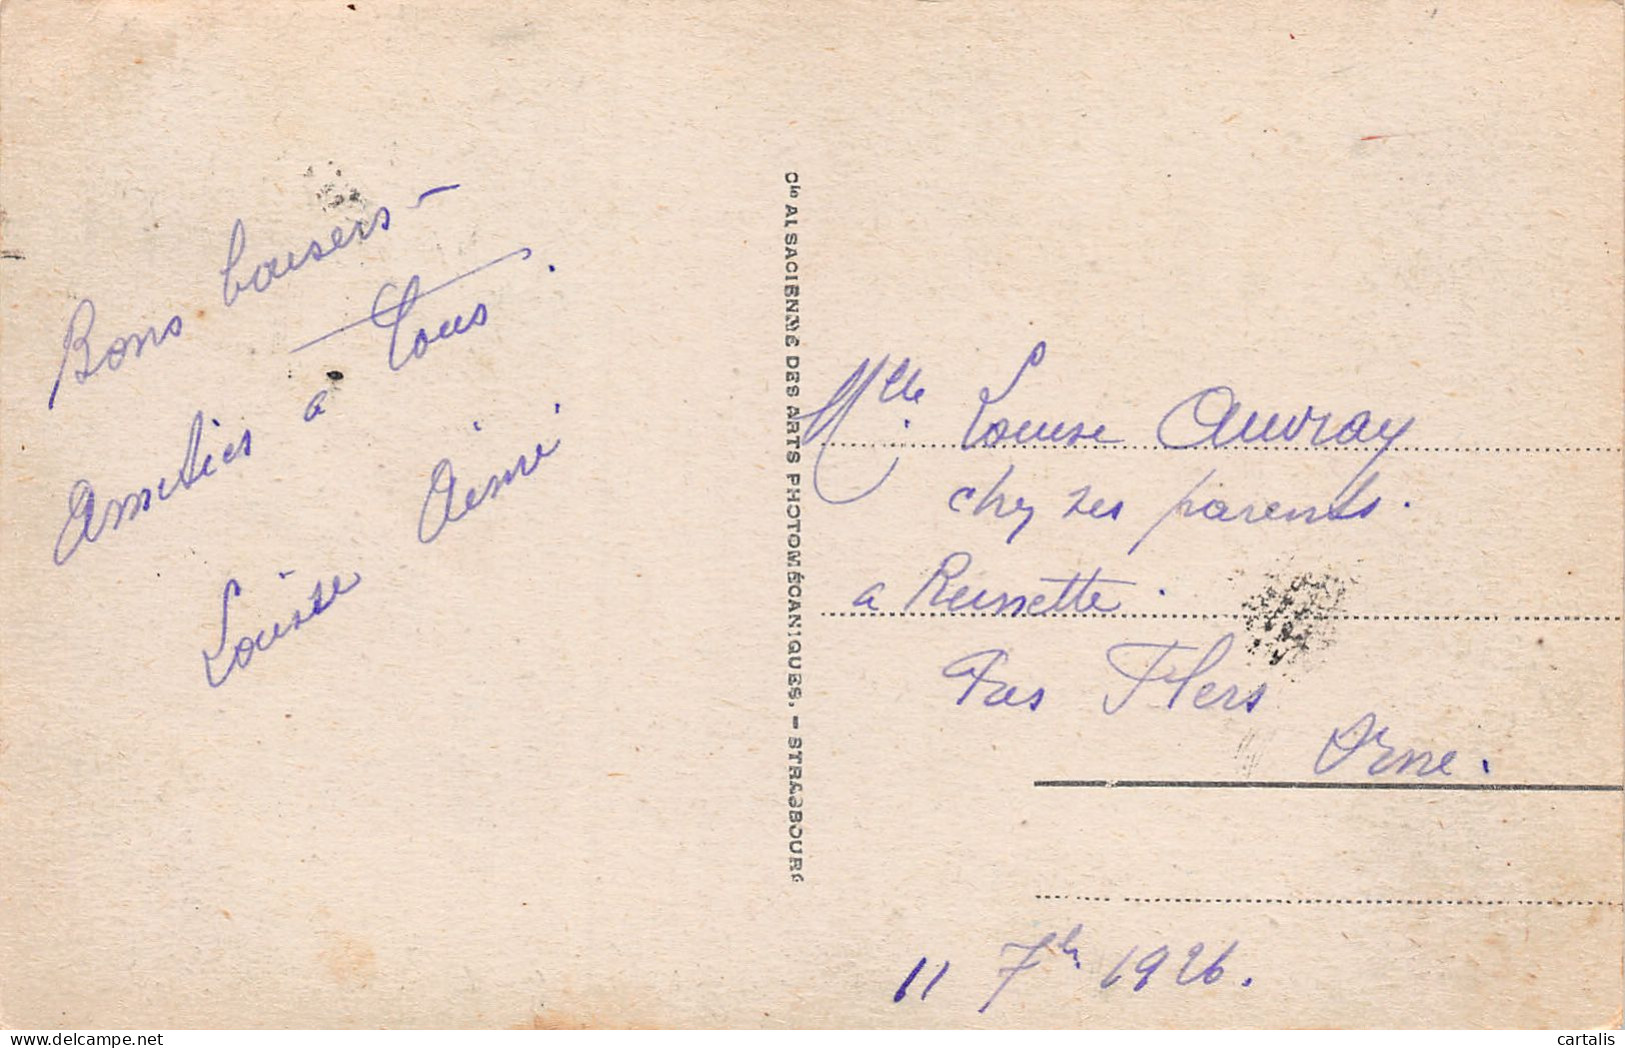 Bons baisers -
Amitiés a Tous.
Louise Aimé
Cie ALSACIENNE DES ARTS PHOTOMÉCANIQUES. - STRASBOURG
Mlle Louise Auvray
chez ses parents.
a
Pas Flers
Orne.
11 7bre 1926.
cartalis